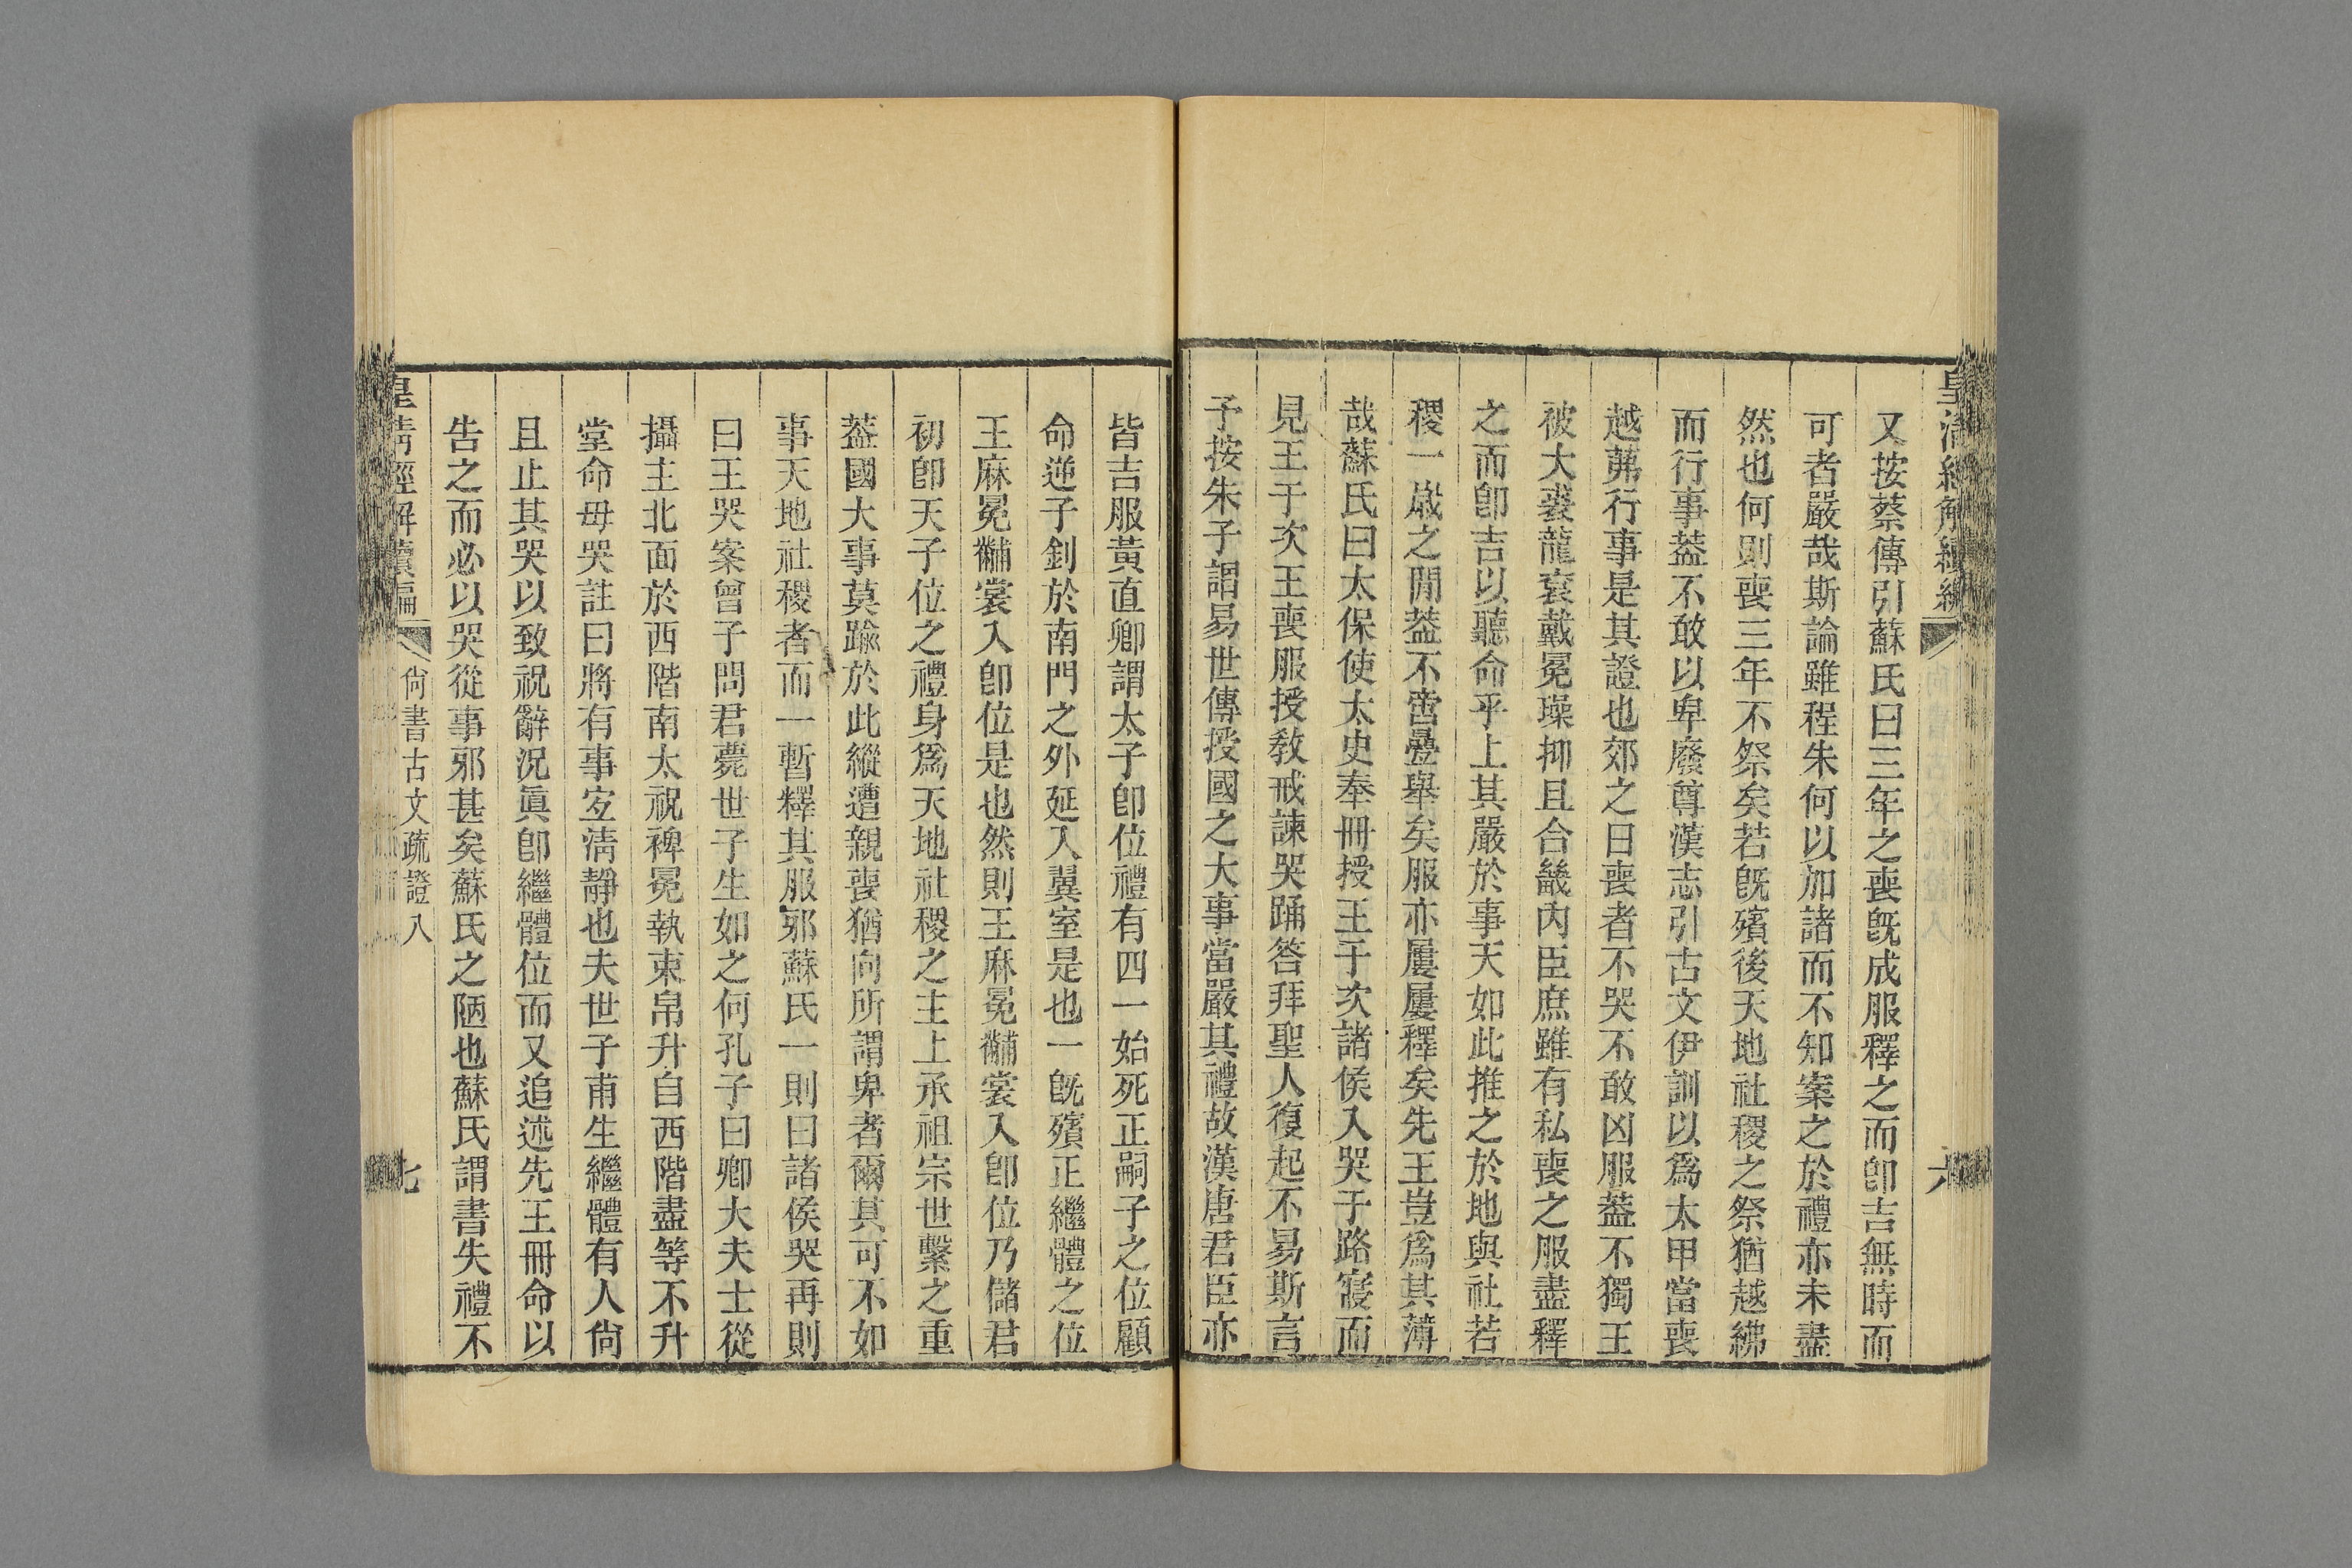 皇清經解續編
六
又按蔡傳引蘇氏曰三年之喪旣成服釋之而卽吉無時而
可者嚴哉斯論雖程朱何以加諸而不知案之於禮亦未盡
然也何則喪三年不祭矣若旣殯後天地社稷之祭猶越紼
而行事葢不敢以卑廢尊漢志引古文伊訓以爲太甲當喪
越茀行事是其證也郊之日喪者不哭不敢凶服葢不獨王
被大裘龍衮戴冕璪抑且合畿內臣庶雖有私喪之服盡釋
之而卽吉以聽命乎上其嚴於事天如此推之於地與社若
稷一歲之閒葢不啻疊舉矣服亦屢屢釋矣先王豈爲其薄
哉蘇氏曰太保使太史奉冊授王于次諸侯入哭于路寢而
見王于次王喪服授敎戒諫哭踊答拜聖人復起不易斯言
予按朱子謂易世傳授國之大事當嚴其禮故漢唐君臣亦
皆吉服黃直卿謂太子卽位禮有四一始死正嗣子之位顧
命逆子釗於南門之外延入翼室是也一旣殯正繼體之位
王麻冕黼裳入卽位是也然則王麻冕黼裳入卽位乃儲君
初卽天子位之禮身爲天地社稷之主上承祖宗世繫之重
葢國大事莫踰於此縱遭親喪猶向所謂卑者爾其可不如
事天地社稷者而一暫釋其服邪蘇氏一則曰諸侯哭再則
曰王哭案曾子問君薨世子生如之何孔子曰卿大夫士從
攝主北面於西階南太祝裨冕執束帛升自西階盡等不升
堂命毋哭註曰將有事宐淸靜也夫世子甫生繼體有人尙
且止其哭以致祝辭況眞卽繼體位而又追述先王冊命以
告之而必以哭從事邪甚矣蘇氏之陋也蘇氏謂書失禮不
皇清經解續編
尙書古文疏證八
七